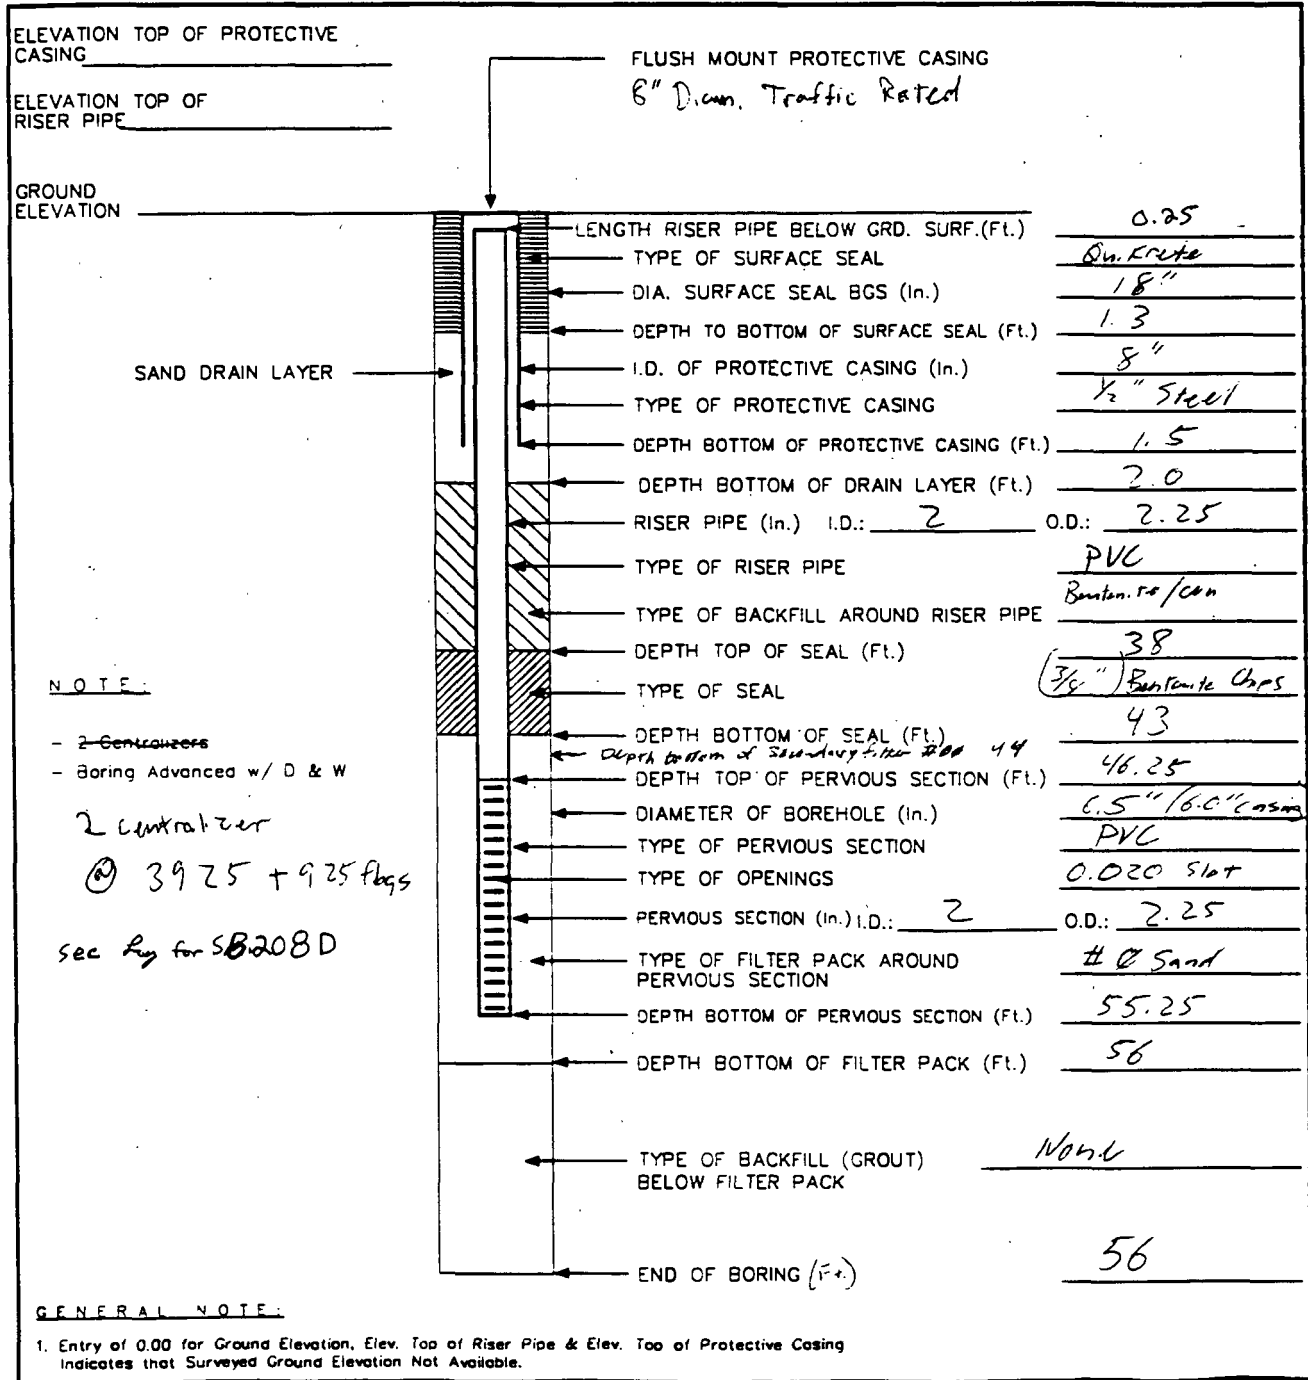 ELEVATION TOP OF PROTECTIVE
CASING
FLUSH MOUNT PROTECTIVE CASING
8" Diam. Traffic Rated
ELEVATION TOP OF
RISER PIPE
GROUND
ELEVATION
LENGTH RISER PIPE BELOW GRD. SURF.(Ft.) 0.25
TYPE OF SURFACE SEAL Qu.Krete
DIA. SURFACE SEAL BGS (In.) 18"
DEPTH TO BOTTOM OF SURFACE SEAL (Ft.) 1.3
SAND DRAIN LAYER
I.D. OF PROTECTIVE CASING (In.) 8"
TYPE OF PROTECTIVE CASING 1/2" Steel
DEPTH BOTTOM OF PROTECTIVE CASING (Ft.) 1.5
DEPTH BOTTOM OF DRAIN LAYER (Ft.) 2.0
RISER PIPE (In.) I.D.: 2 O.D.: 2.25
TYPE OF RISER PIPE PVC
TYPE OF BACKFILL AROUND RISER PIPE Benton.te/cem
DEPTH TOP OF SEAL (Ft.) 38
TYPE OF SEAL (3/8") Bentonite Chips
DEPTH BOTTOM OF SEAL (Ft.) 43
Depth bottom of Secondary filter #00 44
DEPTH TOP OF PERVIOUS SECTION (Ft.) 46.25
DIAMETER OF BOREHOLE (In.) 6.5"/6.0" casing
TYPE OF PERVIOUS SECTION PVC
TYPE OF OPENINGS 0.020 Slot
PERVIOUS SECTION (In.) I.D.: 2 O.D.: 2.25
TYPE OF FILTER PACK AROUND
PERVIOUS SECTION # 0 Sand
DEPTH BOTTOM OF PERVIOUS SECTION (Ft.) 55.25
DEPTH BOTTOM OF FILTER PACK (Ft.) 56
TYPE OF BACKFILL (GROUT)
BELOW FILTER PACK None
END OF BORING (Ft.) 56
NOTE:
- 2 Centralizers
- Boring Advanced w/ D & W
2 centralizer
@ 39 25 + 9 25 fbgs
see log for SB208D
GENERAL NOTE:
1. Entry of 0.00 for Ground Elevation, Elev. Top of Riser Pipe & Elev. Top of Protective Casing
Indicates that Surveyed Ground Elevation Not Available.